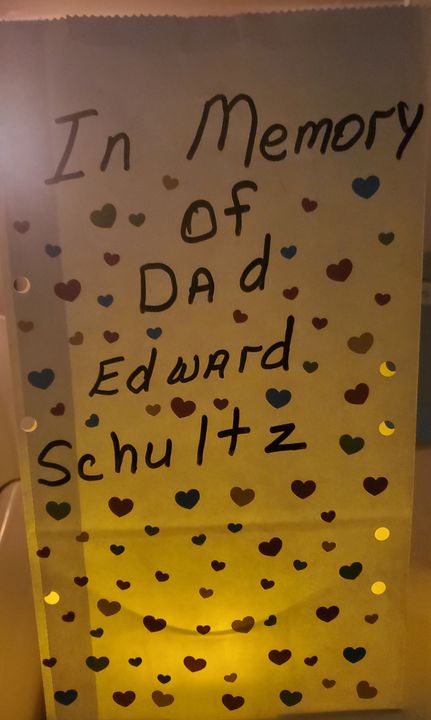 In Memory
of
DAd
Edward
Schultz